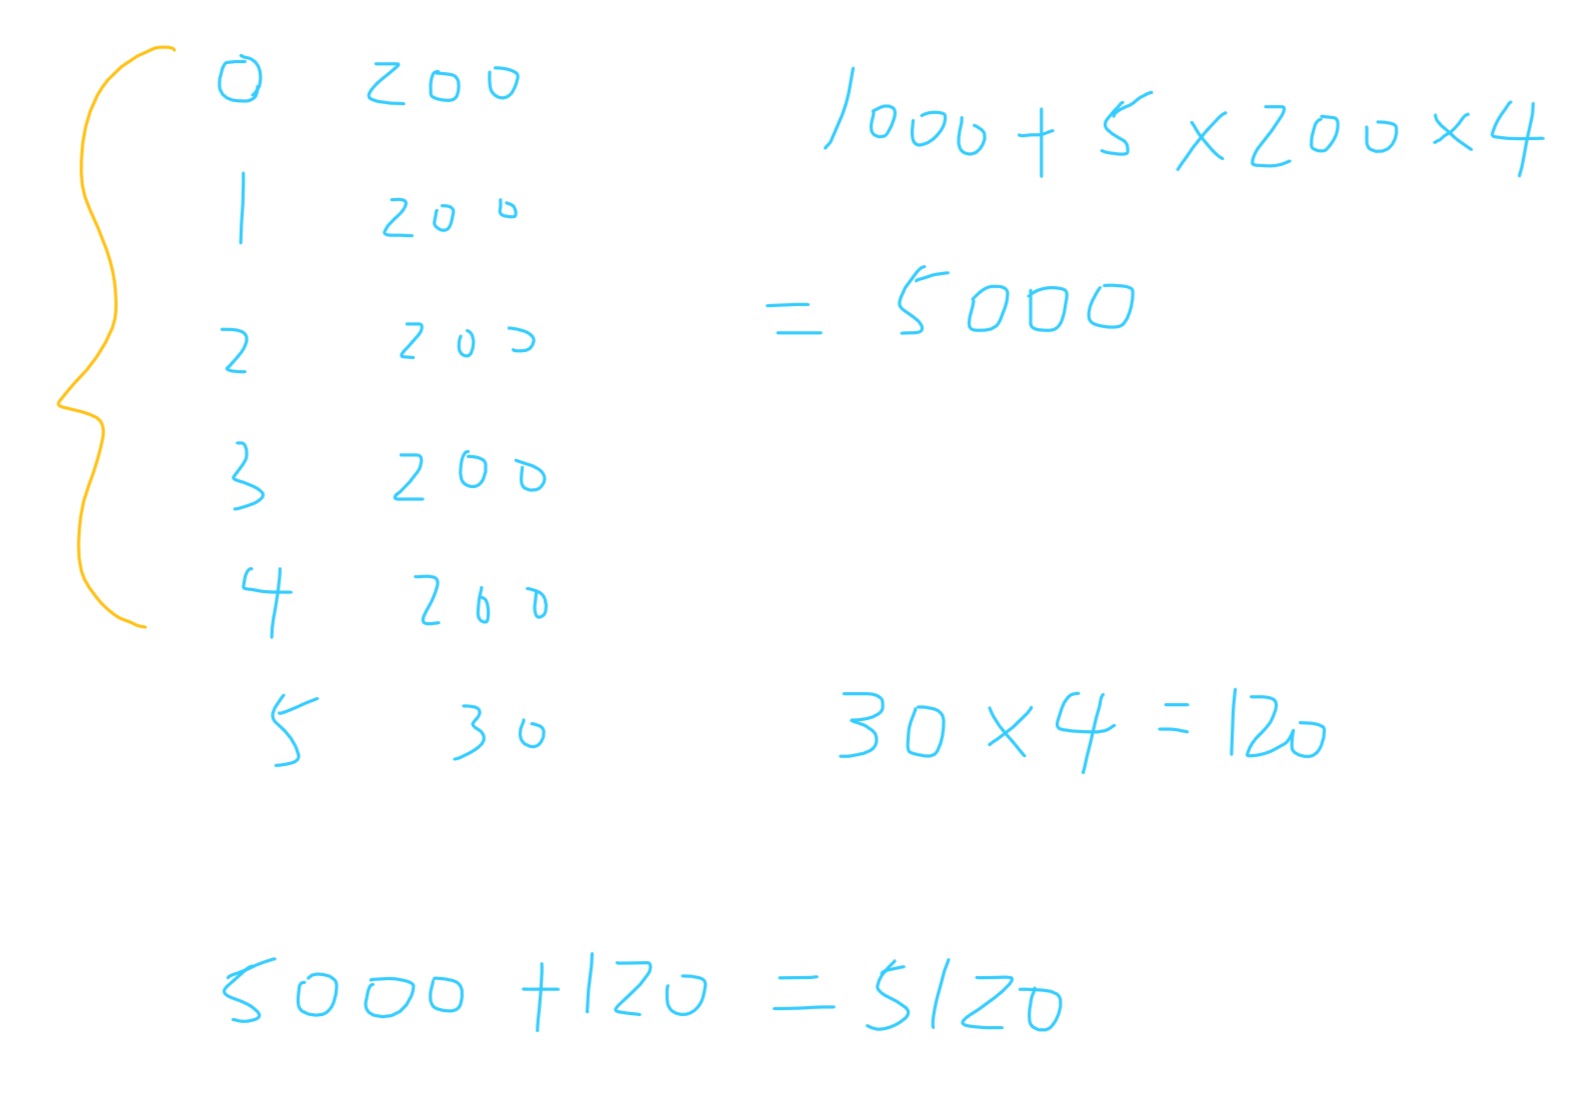 0 200
1000+5×200×4
1 200
= 5000
2 200
3 200
4 200
5 30
30×4=120
5000+120=5120